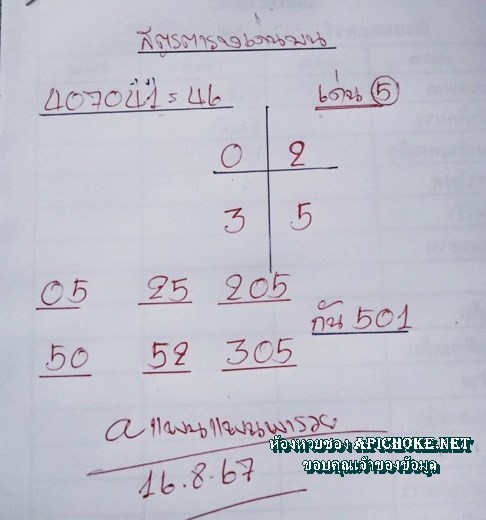 สูตรตารางเด่นบน
407041=46 เด่น 5
0 2
3 5
05 25 205
กัน 501
50 52 305
a แพนแพนพารวย
ห้องหวยซอง APICHOKE.NET
ขอบคุณเจ้าของข้อมูล
16.8.67